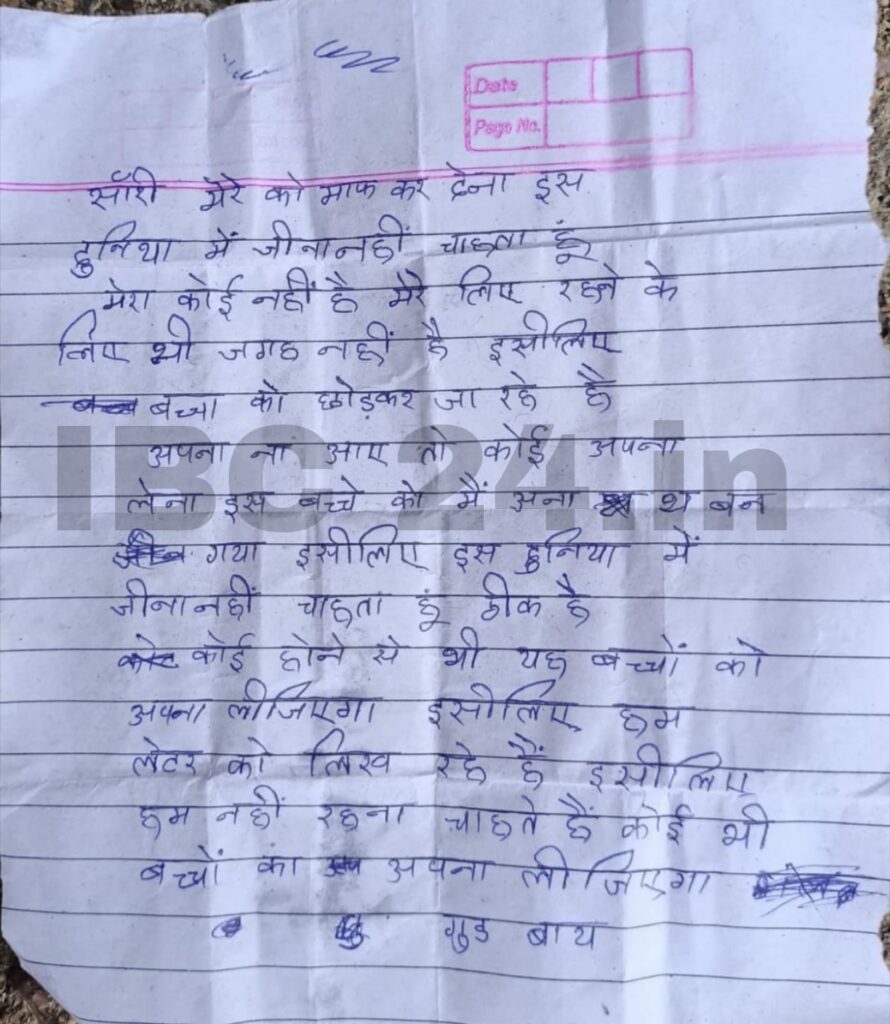 Date
Page No.
सॉरी मेरे को माफ कर देना इस
दुनिया में जीना नहीं चाहता हूं
मेरा कोई नहीं है मेरे लिए रहने के
लिए भी जगह नहीं है इसीलिए
बच्चा को छोड़कर जा रहे है
अपना ना आए तो कोई अपना
लेना इस बच्चे को मैं अना थ बन
गया इसीलिए इस दुनिया में
जीना नहीं चाहता हूं ठीक है
कोई होने से भी यह बच्चों को
अपना लीजिएगा इसीलिए हम
लेटर को लिख रहे हैं इसीलिए
हम नहीं रहना चाहते हैं कोई भी
बच्चों का अपना लीजिएगा
गुड बाय
IBC 24.in